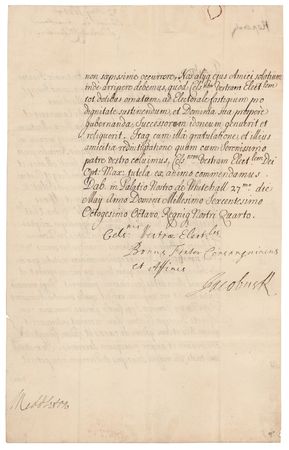 non sapissime occurrere, Nos aliq ejus Amici solatium
inde arripere debemus, quod Cels Vestram Elect
tot dotibus ornatam, ad Electorale fastigium
dignitate sustinendum, et Dominia sua prospere
gubernanda Successorem idoneum
reliquerit. Itaq cum illa gratulatione, et illius
amicitiæ redintegratione quam cum Serenissimo
patre vestro coluimus, Cels Vestram Elect Dei
Opt. Max. tutelæ ex animo commendamus.
Dab. in Palatio Nostro de Whitehall 27mo die
May Anno Domini Millesimo Sexcentesimo
Octogesimo Octavo, Regniq Nostri Quarto.
Cels nis Vestræ Elect lis
Bonus Frater Consanguineus
et Affinis
Jacobus R
Middleton